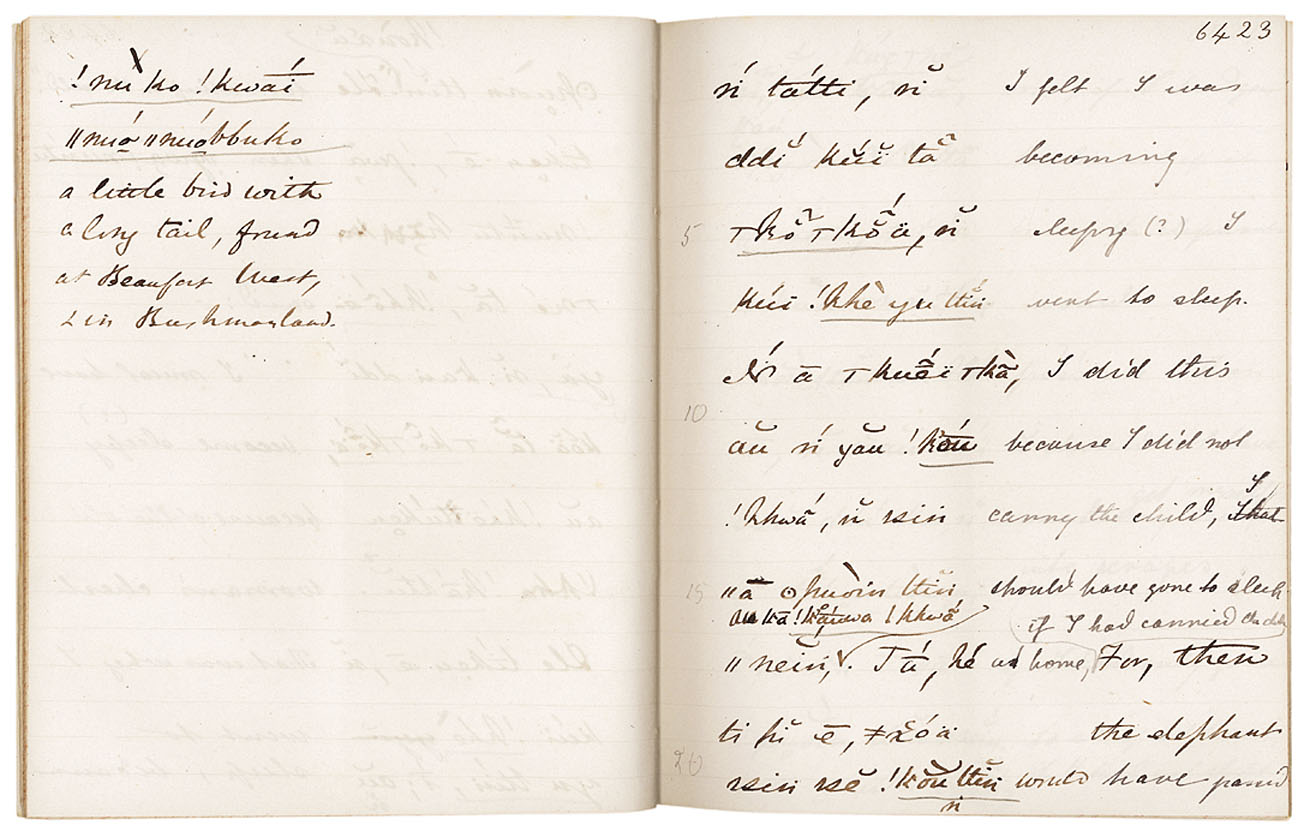 !nu ko !kwāi
ǁnuó ǁnuóbbuko
a little bird with
a long tail, found
at Beaufort West,
& in Bushmanland.
6423
ń tátti, ň I felt I was
ddĭ kúï tā̆ becoming
5 sleepy (?) I
kúi !khè yu ttĭń went to sleep.
Ń ā I did this
10
au ń yău !kóu because I did not
!khwā́, ň ssin carry the child, I
15 ǁā ʘpuòin ttĭń should have gone to sleep
au kā !khwā́ if I had carried the child
ǁneiń, Tā́, hé at home, For, then
ti hĭ ē, ǂxóä the elephant
20
ssin ssĕ !kŏu ttĭń would have passed